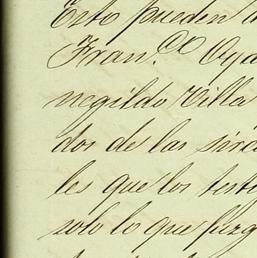 Esto pueden
Fran.co Aya
negildo Villa
dos de las sirc
les que los testi
solo lo que juzg